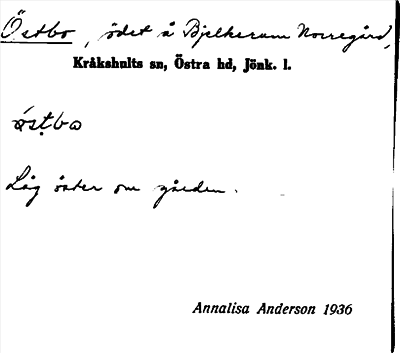 Östbo, ödet å Bjelkerum Norregård,
Kråkshults sn, Östra hd, Jönk. l.
östbo
Låg öster om gården.
Annalisa Anderson 1936